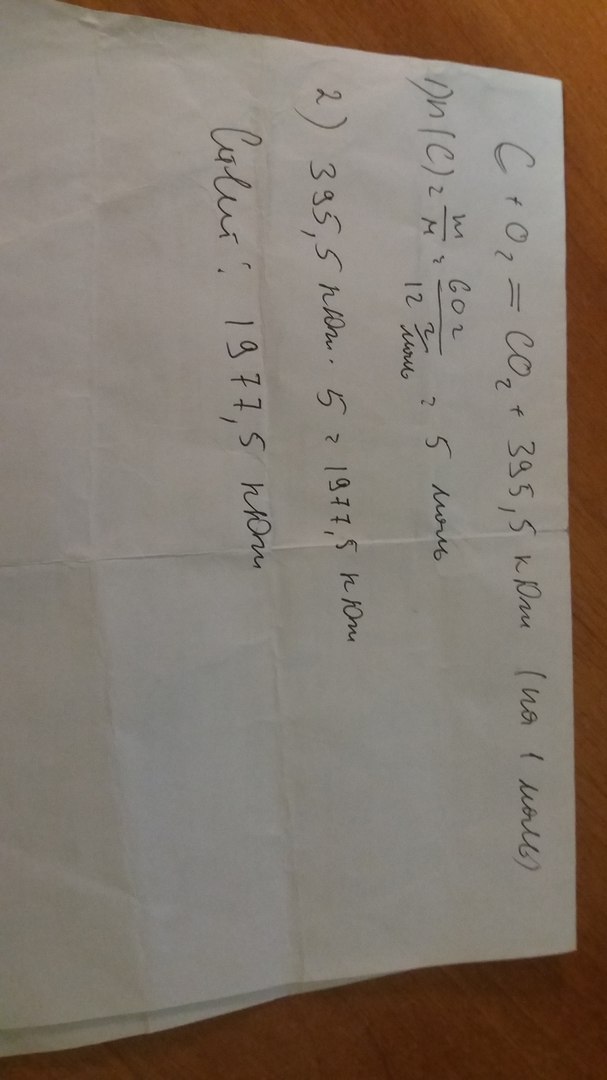 C + O₂ = CO₂ + 395,5 кДж (на 1 моль)
1) n(C) = m/M = 60 г / 12 г/моль = 5 моль
2) 395,5 кДж · 5 = 1977,5 кДж
Ответ: 1977,5 кДж